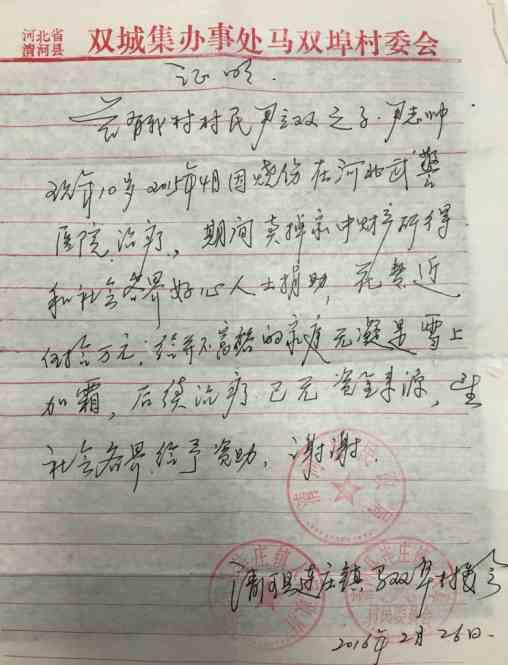 河北省
清河县
双城集办事处马双埠村委会
证明
兹有我村村民尹立双之子.尹志帅
现年10岁2015年4月因烧伤在河北武警
医院治疗,期间卖掉家中财产所得
和社会各界好心人士捐助,花费近
伍拾万元,给并不富裕的家庭无凝是雪上
加霜,后续治疗已无资金来源,望
社会各界给予资助,谢谢.
清河县连庄镇马双埠村委会
2016年2月26日.